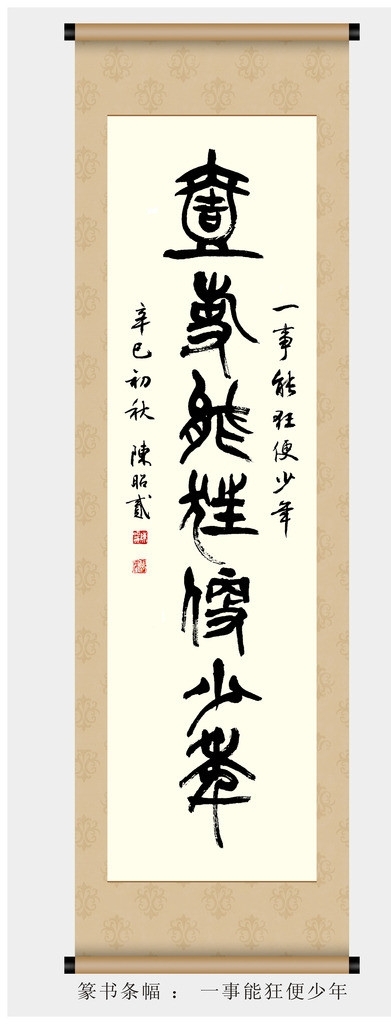 一事能狂便少年
壹事能狂便少年
辛巳初秋 陳昭貳
篆书条幅 : 一事能狂便少年